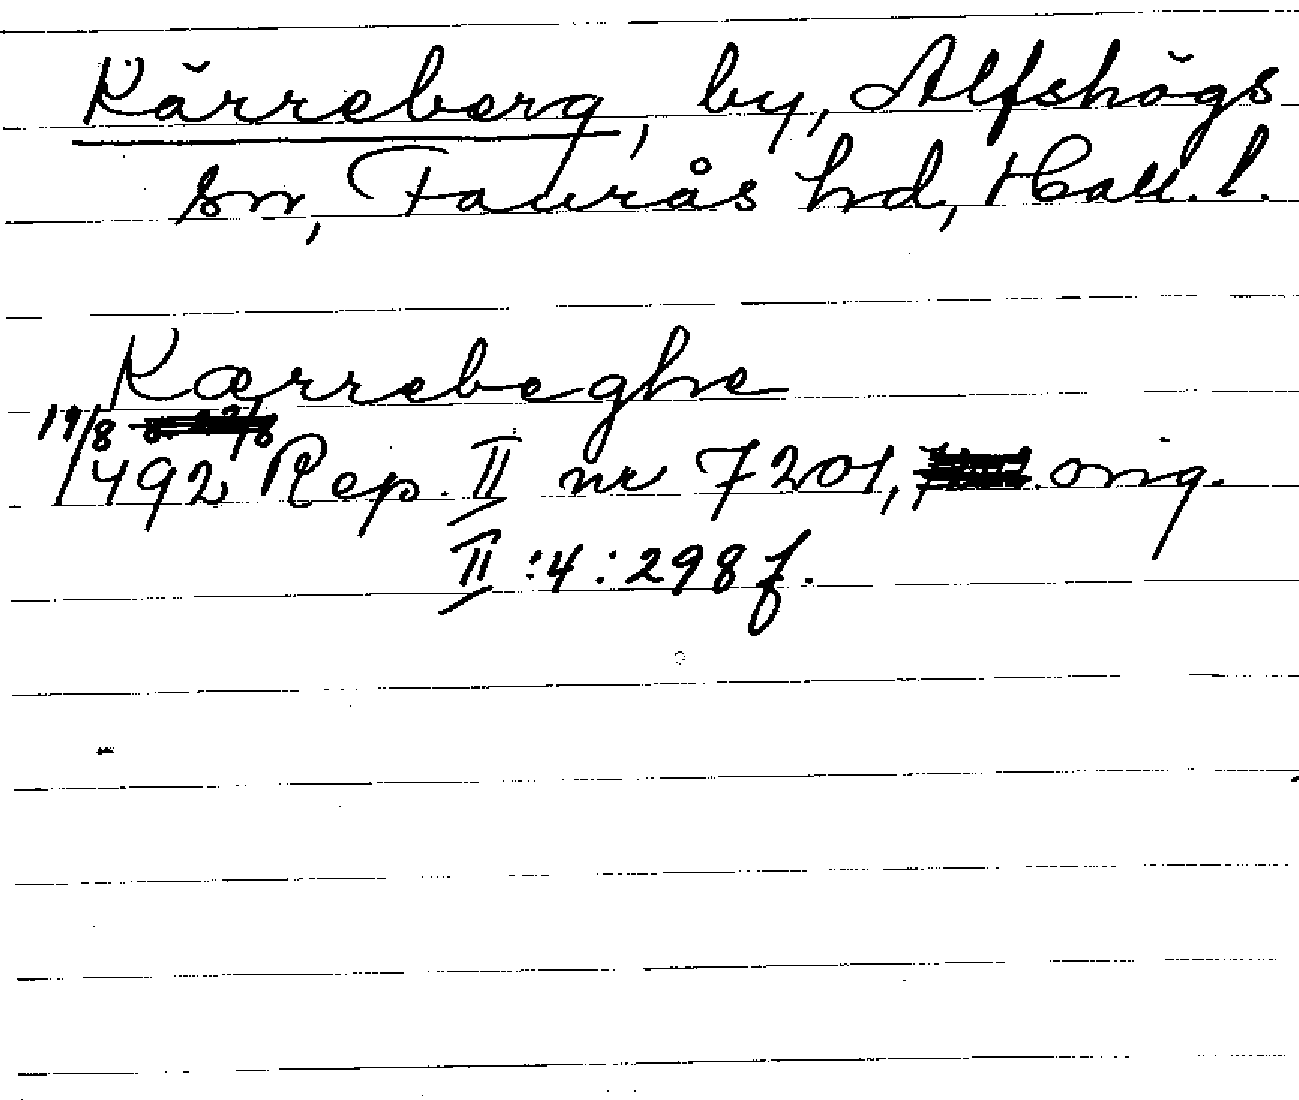 Kärreberg, by, Alfshögs
sn, Faurås hd, Hall. l.
Kærrebeghe
19/8
1492 Rep. II nr 7201, orig.
II:4:298 f.